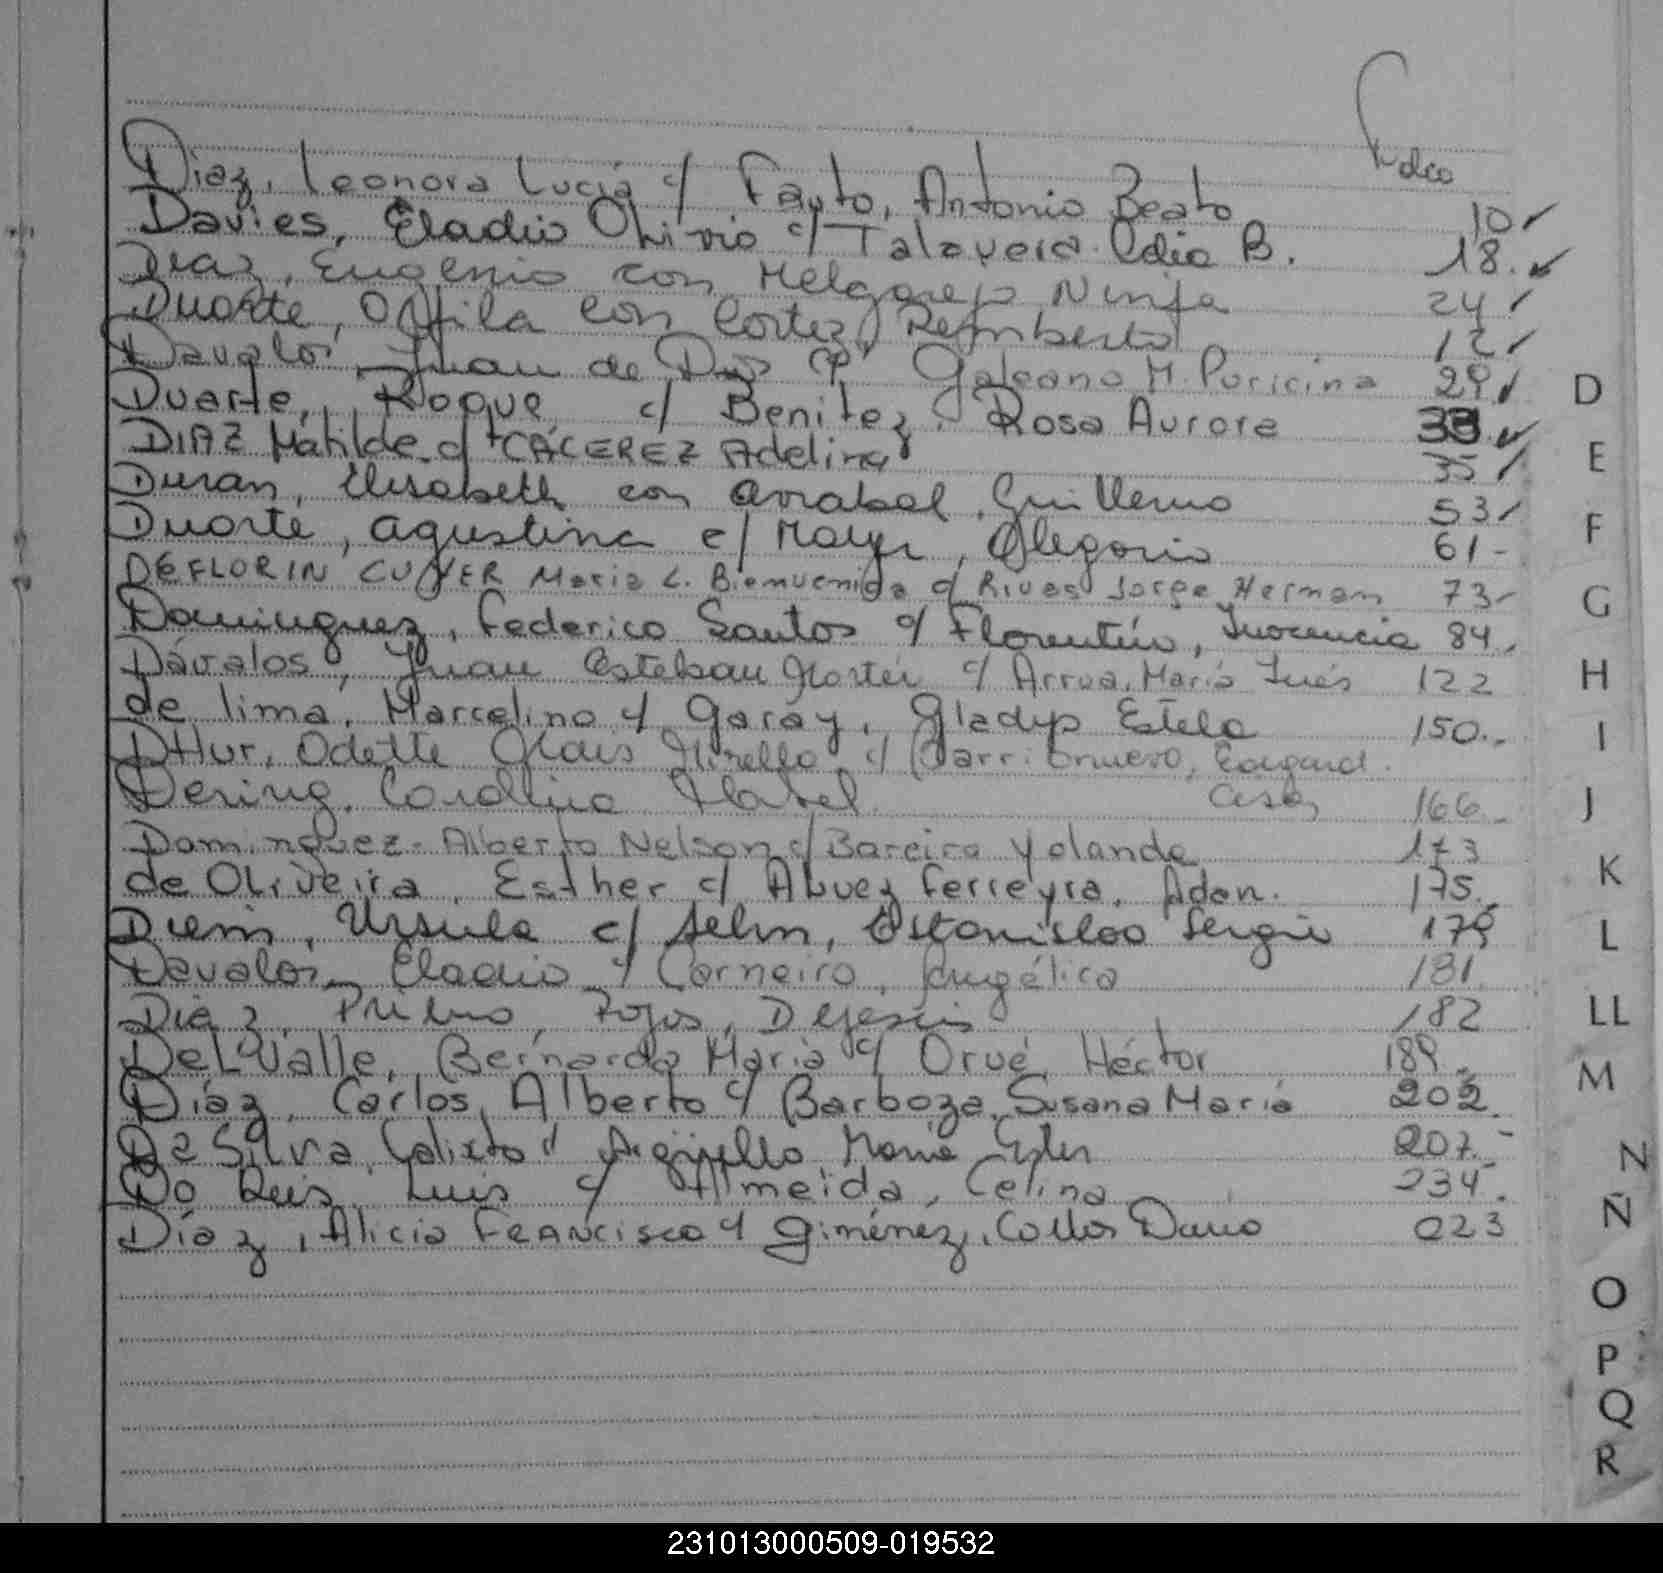 Folio
Diaz, Leonora Lucia c/ Fayto, Antonio Beato 10
Davies, Eladio Olivio c/ Talavera Idia B. 18.
Diaz, Eugenio con Melgarejo Ninfa 24
Duarte, con Cortez, Remberto 12
Davalos Juan de Dios c/ Galeano M. Puricina 29
Duarte, Roque c/ Benitez, Rosa Aurora 33
DIAZ Matilde c/ CÁCEREZ Adelina 35
Duran, Elisabeth con Arrabal, Guillermo 53
Duarte, Agustina c/ , Olegario 61-
DEFLORIN Maria L. Bienvenida c/ Rivas Jorge Herman 73-
Dominguez, Federico Santos c/ Florentín, Inocencia 84
Dávalos, Juan Esteban c/ Arrua, María Inés 122
de lima, Marcelino c/ Garay, Gladys Estela 150.
Odette c/ , Edgard
Dering, Carolina Mabel César 166
Dominguez - Alberto Nelson c/ Bareiro Yolanda 173
de Oliveira, Esther c/ Ferreyra, Adan. 175
Diem, Ursula c/ Selm, Estanislao Sergio 179
Davalos, Eladio c/ Carneiro, Angélica 181
Diaz, Primo, Rojas, Dejesús 182
Del Valle, Bernarda María c/ Orué, Héctor 189
Díaz, Carlos Alberto c/ Barboza, Susana María 202
Da Silva, Calixto c/ Argüello, María Ester 207
Do Reis, Luis c/ Almeida, Celina 234
Díaz, Alicia Francisca c/ Giménez, Carlos Dario 023
D
E
F
G
H
I
J
K
L
LL
M
N
Ñ
O
P
Q
R
231013000509-019532